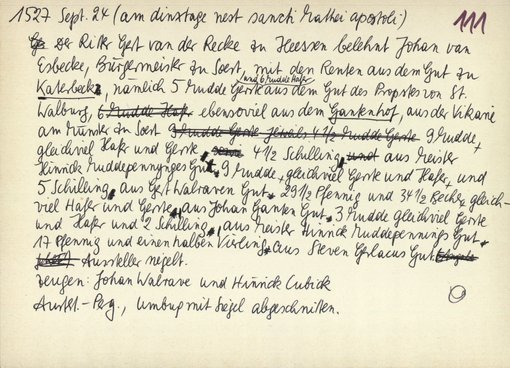 1527 Sept. 24 (am dinxtage nest sancti Mathei apostoli) 111
Der Ritter Gert van der Recke zu Heessen belehnt Johan van
Esbecke, Bürgermeister zu Soest, mit den Renten aus dem Gut zu
Katerbeck, nämlich 5 Mudde Gerste und 6 Mudde Hafer aus dem Gut des Propstes von St.
Walburg, 6 Mudde Hafer ebensoviel aus dem Gankenhof, aus der Vikarie
am Münster zu Soest 9 Mudde Gerste jeweils 4 1/2 Mudde Gerste 9 Mudde
gleichviel Hafer und Gerste 4 1/2 Schilling, und aus Meister
Hinrick Muddepennynges Gut, 9 Mudde gleichviel Gerste und Hafer und
5 Schilling, aus Gert Walraven Gut, 29 1/2 Pfennig und 34 1/2 Becher gleich-
viel Hafer und Gerste, aus Johan Ganken Gut, 3 Mudde gleichviel Gerste
und Hafer und 2 Schilling, aus Meister Hinrick Muddepennings Gut,
17 Pfennig und einen halben Vierling, aus Steven Gut
Aussteller siegelt.
Zeugen: Johan Walrave und Hinrick Cubick
Ausf.-Perg., Umbug mit Siegel abgeschnitten.